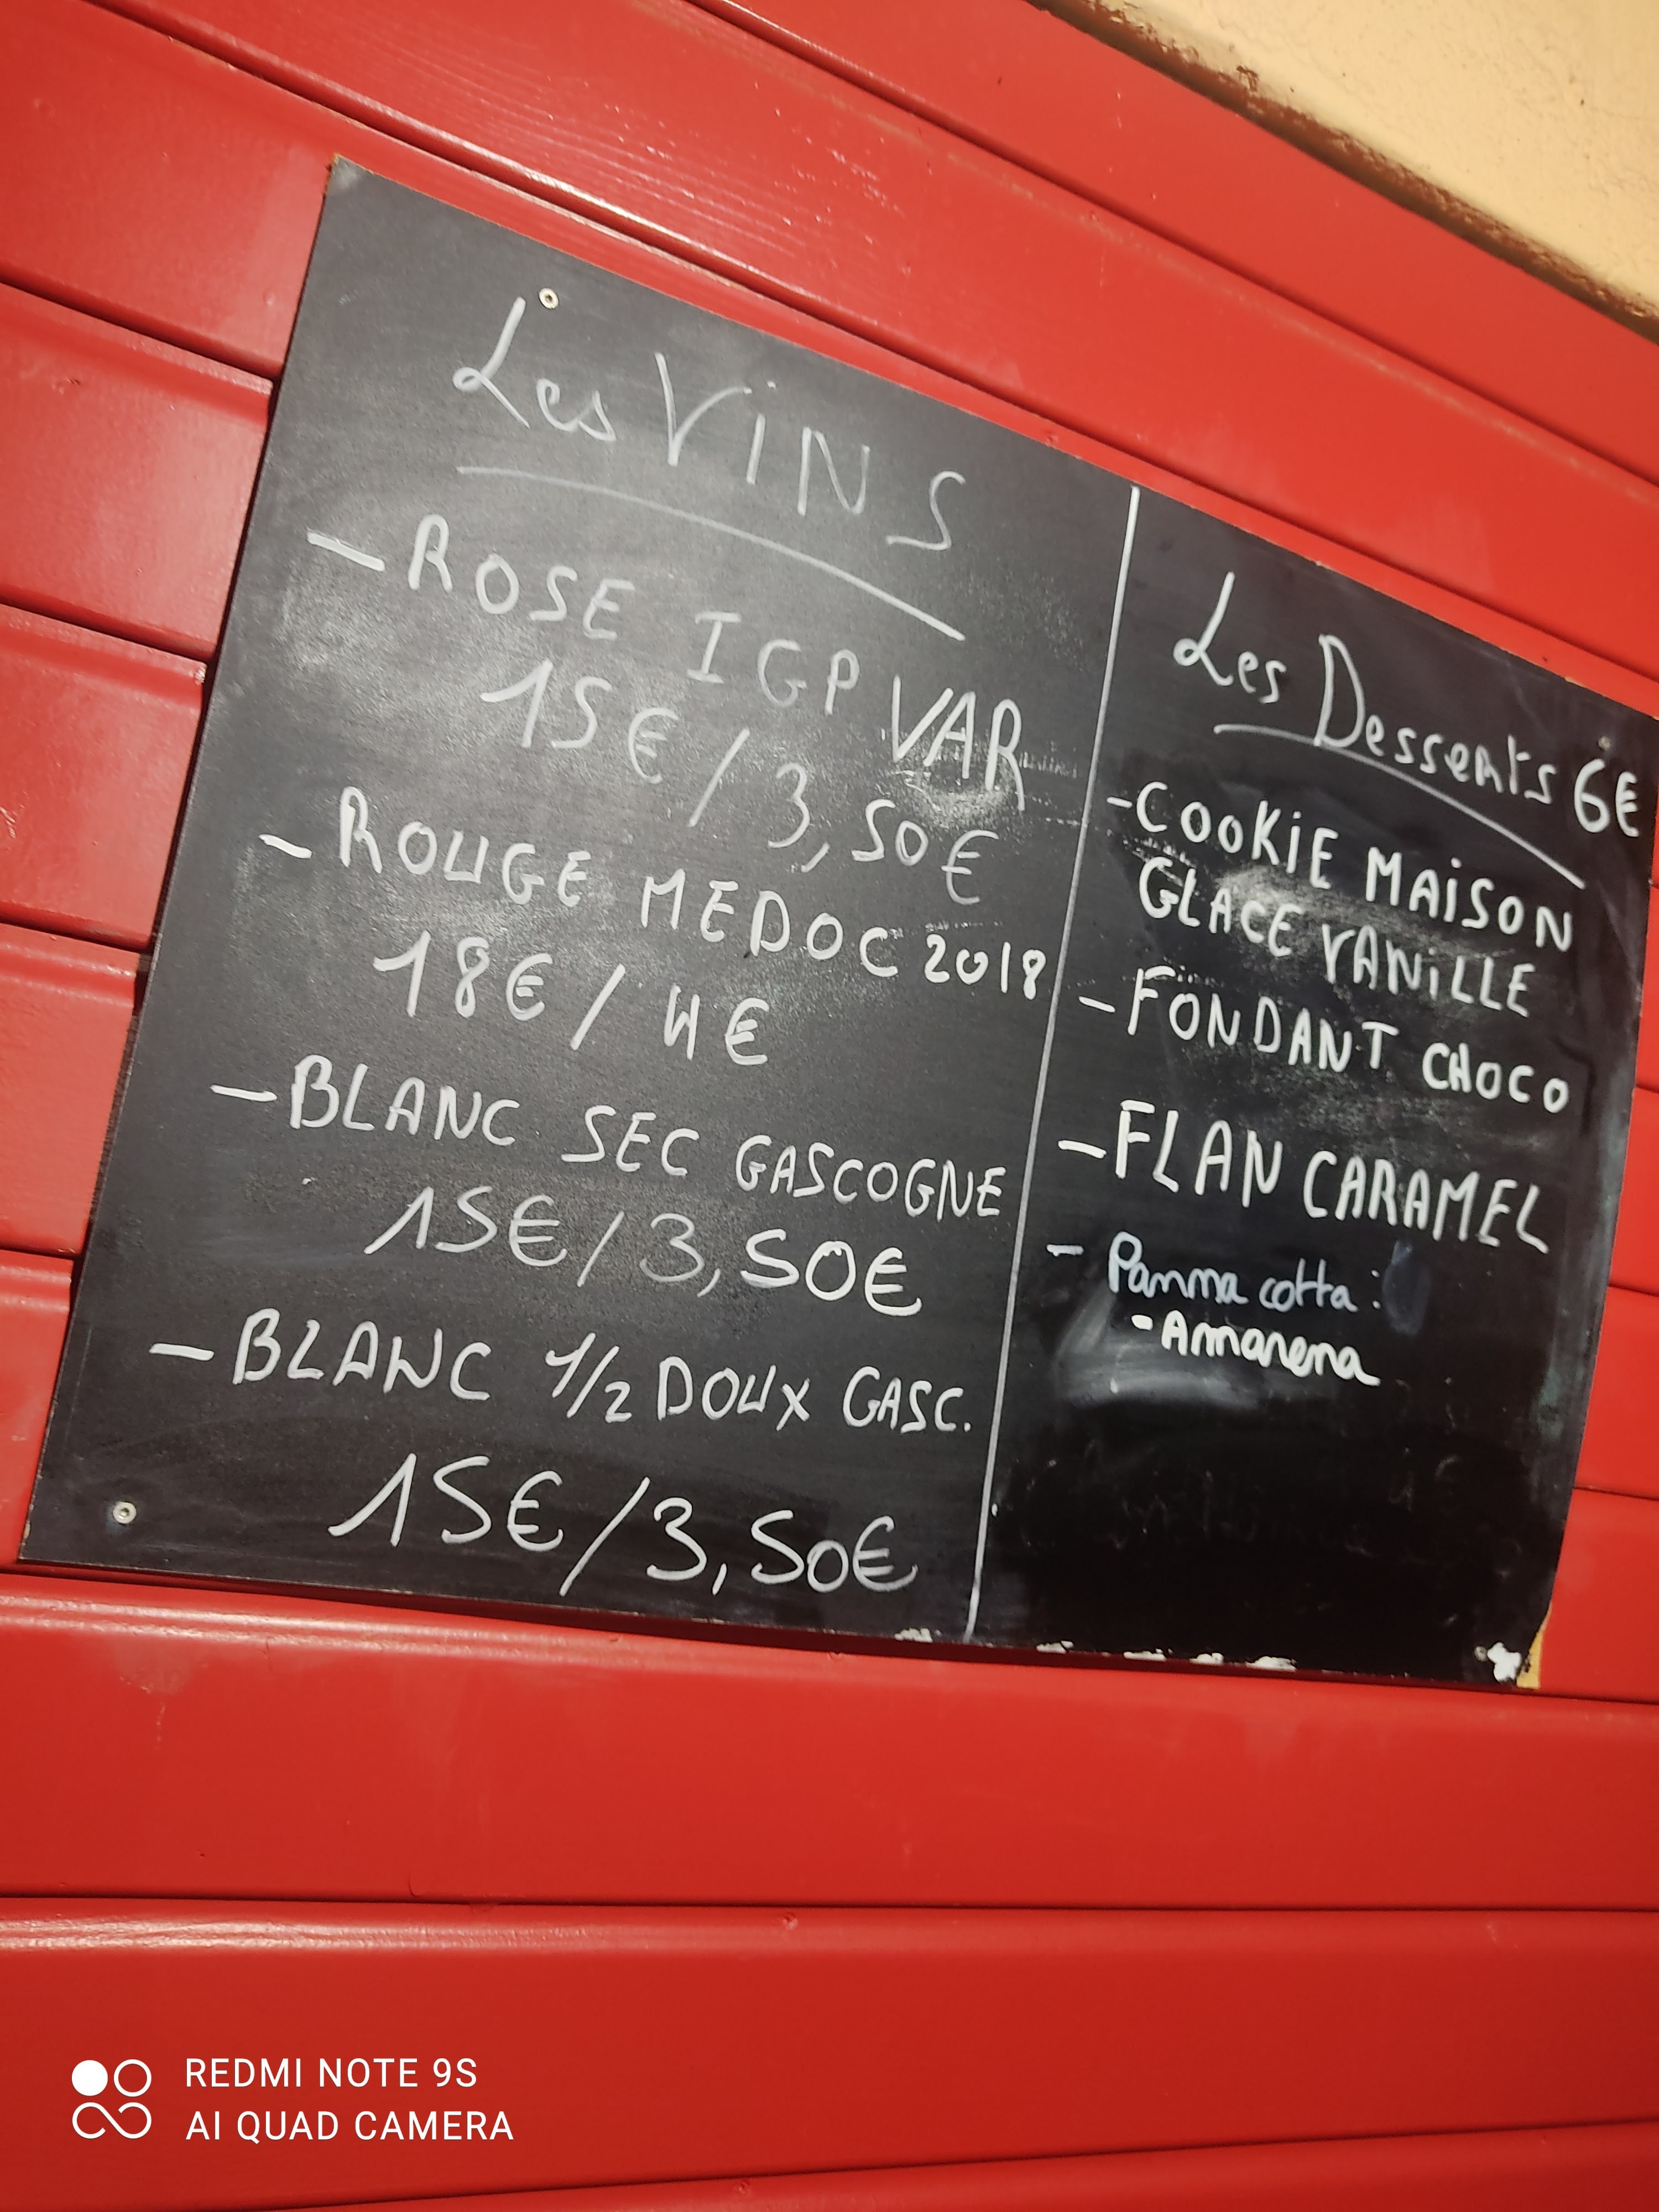 Les ViNS
- ROSE IGP VAR
15€ / 3,50€
- ROUGE MEDOC 2018
18€ / 4€
- BLANC SEC GASCOGNE
15€ / 3,50€
- BLANC 1/2 DOUX GASC.
15€ / 3,50€
Les Desserts 6€
- COOKiE MAiSON
GLACE VANiLLE
- FONDANT CHOCO
- FLAN CARAMEL
- Panna cotta :
- Amarena
REDMI NOTE 9S
AI QUAD CAMERA